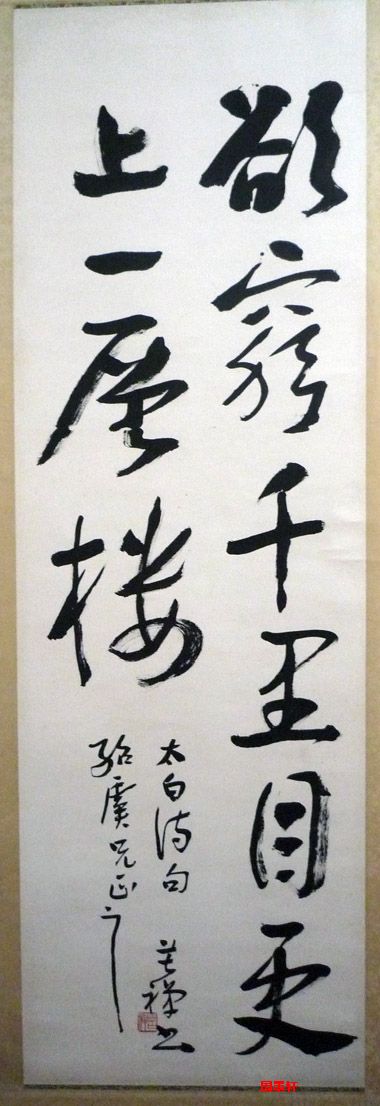 欲窮千里目更
上一層楼
太白詩句
虞兄正之
書